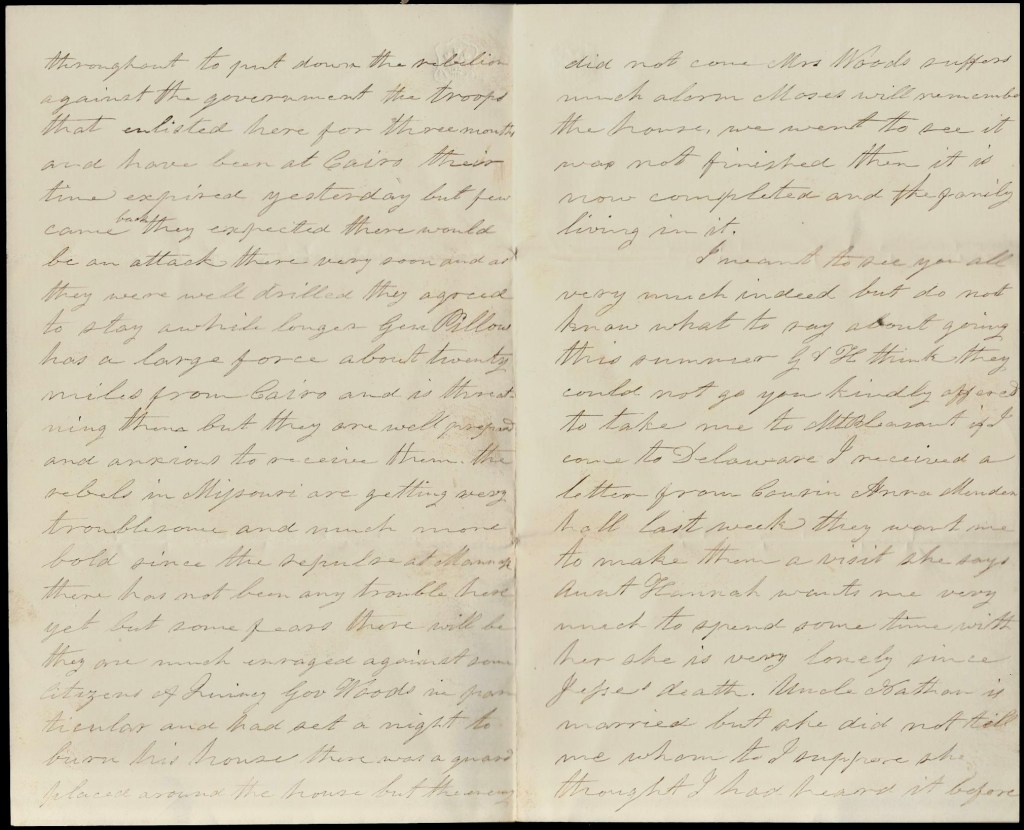 throughout to put down the rebelion
against the government the troops
that enlisted here for three months
and have been at Cairo their
time expired yesterday but few
came back they expected there would
be an attack there very soon and as
they were well drilled they agreed
to stay awhile longer Gen Pillow
has a large force about twenty
miles from Cairo and is threat
ning them but they are well prepared
and anxious to receive them. the
rebels in Missouri are getting very
troublesome and much more
bold since the repulse at Mannas
there has not been any trouble here
yet but some fears there will be
they are much enraged against some
citizens of Quincy Gov Woods in par
ticular and had set a night to
burn his house there was a guard
placed around the house but the enemy
did not come Mrs Woods suffers
much alarm Moses will remember
the house, we went to see it
was not finished then it is
now completed and the family
living in it.
I meant to see you all
very much indeed but do not
know what to say about going
this summer G & H think they
could not go you kindly offered
to take me to Mt Pleasant if I
come to Delaware I received a
letter from Cousin Anna Menden
hall last week they want me
to make them a visit she says
Aunt Hannah wants me very
much to spend some time with
her she is very lonely since
Jesse's death. Uncle Nathan is
married but she did not tell
me whom to I suppose she
thought I had heard it before